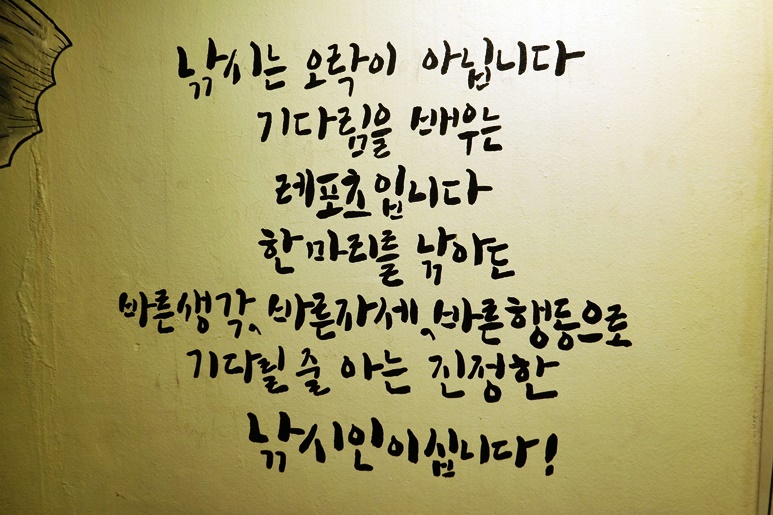 낚시는 오락이 아닙니다
기다림을 배우는
레포츠입니다
한 마리를 낚아도
바른생각, 바른자세, 바른행동으로
기다릴 줄 아는 진정한
낚시인이십니다!